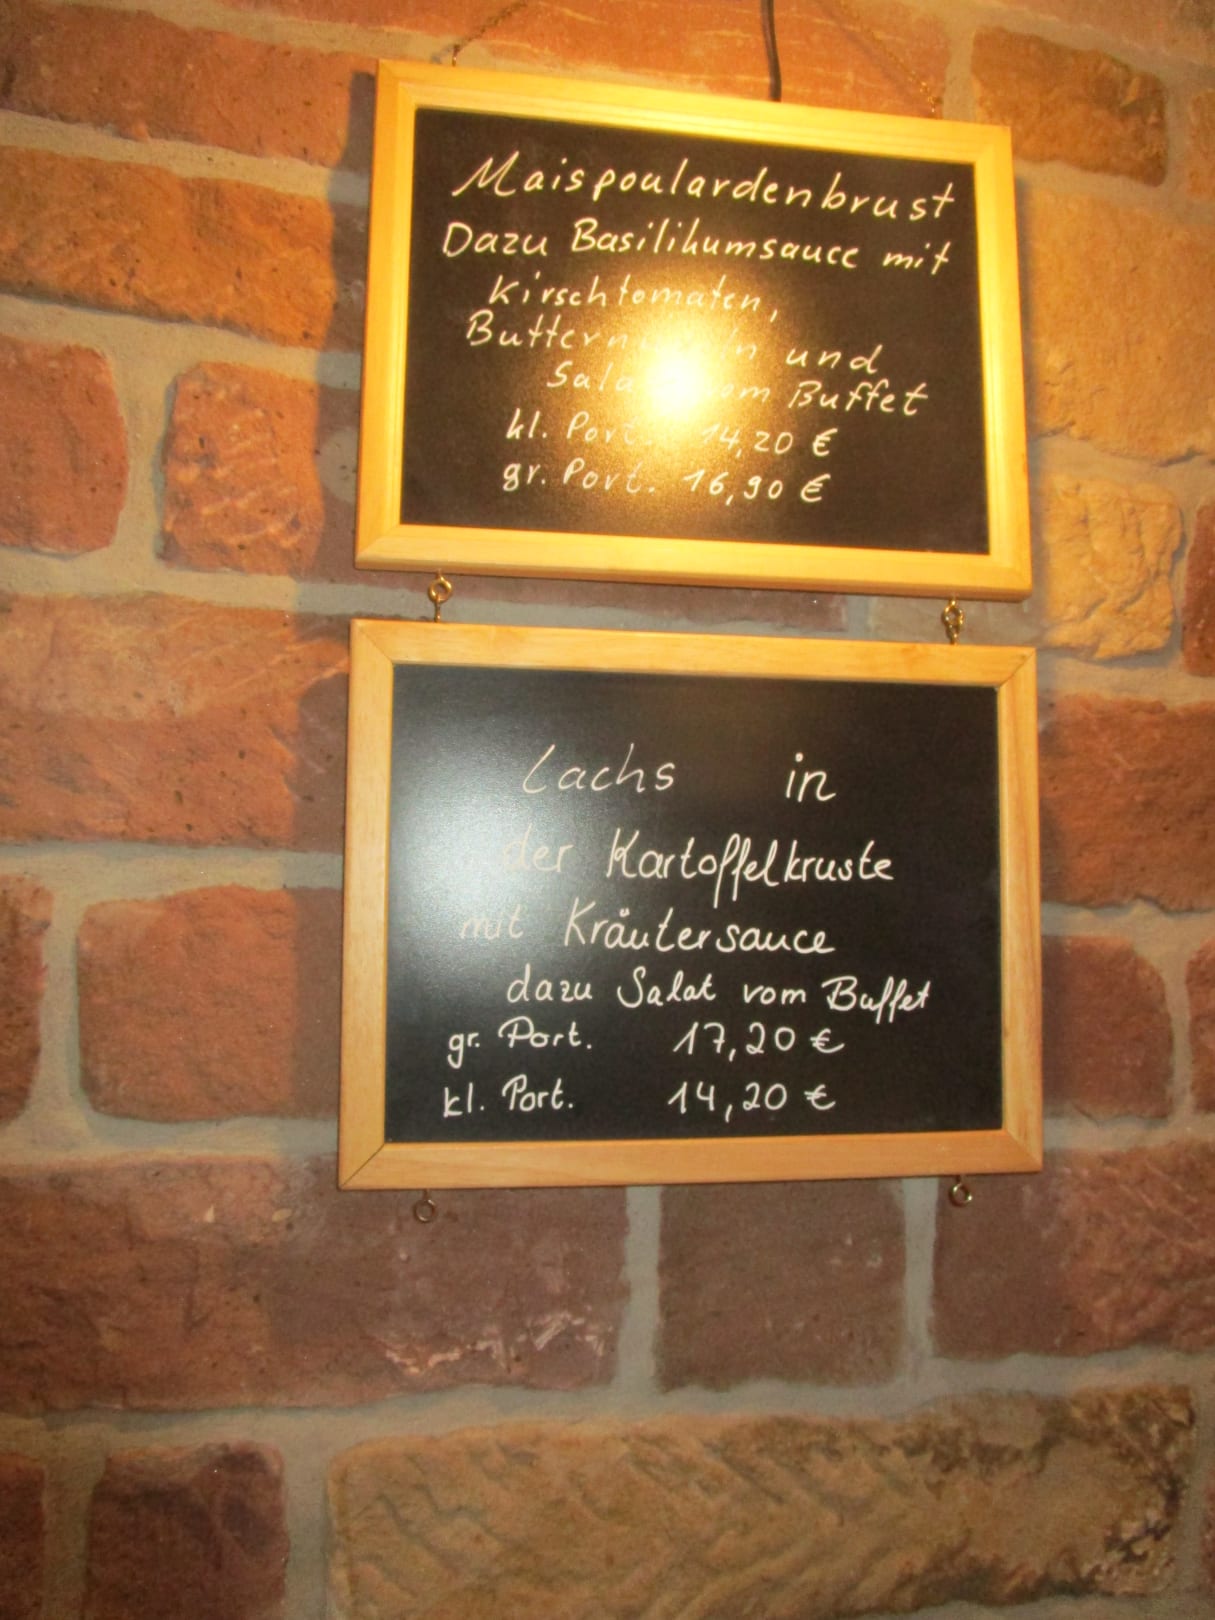 Maispoulardenbrust
Dazu Basilikumsauce mit
Kirschtomaten,
und
vom Buffet
kl. Port. 14,20 €
gr. Port. 16,90 €
Lachs in
der Kartoffelkruste
mit Kräutersauce
dazu Salat vom Buffet
gr. Port. 17,20 €
kl. Port. 14,20 €